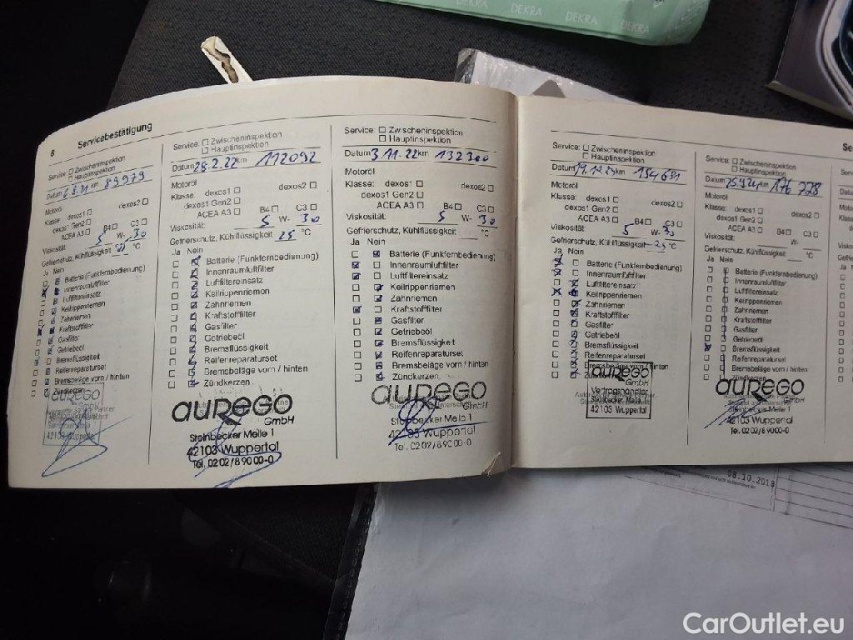 DEKRA DEKRA DEKRA
8 Servicebestätigung
Service: ☐ Zwischeninspektion
☐ Hauptinspektion
Datum km 89979
Motoröl
Klasse: dexos1 ☐ dexos2 ☐
dexos1 Gen2 ☐
ACEA A3 ☐ B4 ☐ C3 ☐
Viskosität: 5 W- 30
Gefrierschutz, Kühlflüssigkeit °C
Ja Nein
Batterie (Funkfernbedienung)
Innenraumluftfilter
Luftfiltereinsatz
Keilrippenriemen
Zahnriemen
Kraftstofffilter
Gasfilter
Getriebeöl
Bremsflüssigkeit
Reifenreparaturset
Bremsbeläge vorn / hinten
Zündkerzen
42103 Wuppertal
Service: ☐ Zwischeninspektion
☐ Hauptinspektion
Datum 28.2.22 km 112092
Motoröl
Klasse: dexos1 ☐ dexos2 ☐
dexos1 Gen2 ☐
ACEA A3 ☐ B4 ☐ C3 ☐
Viskosität: 5 W- 30
Gefrierschutz, Kühlflüssigkeit 25 °C
Ja Nein
Batterie (Funkfernbedienung)
Innenraumluftfilter
Luftfiltereinsatz
Keilrippenriemen
Zahnriemen
Kraftstofffilter
Gasfilter
Getriebeöl
Bremsflüssigkeit
Reifenreparaturset
Bremsbeläge vorn / hinten
Zündkerzen
aurego
GmbH
Steinbecker Meile 1
42103 Wuppertal
Tel. 0202/69000-0
Service: ☐ Zwischeninspektion
☐ Hauptinspektion
Datum 3.11.22 km 132300
Motoröl
Klasse: dexos1 ☐ dexos2 ☐
dexos1 Gen2 ☐
ACEA A3 ☐ B4 ☐ C3 ☐
Viskosität: 5 W- 30
Gefrierschutz, Kühlflüssigkeit °C
Ja Nein
Batterie (Funkfernbedienung)
Innenraumluftfilter
Luftfiltereinsatz
Keilrippenriemen
Zahnriemen
Kraftstofffilter
Gasfilter
Getriebeöl
Bremsflüssigkeit
Reifenreparaturset
Bremsbeläge vorn / hinten
Zündkerzen
aurego
GmbH
Steinbecker Meile 1
42103 Wuppertal
Tel. 0202/69000-0
Service: ☐ Zwischeninspektion
☐ Hauptinspektion
Datum km
Motoröl
Klasse: dexos1 ☐ dexos2 ☐
dexos1 Gen2 ☐
ACEA A3 ☐ B4 ☐ C3 ☐
Viskosität: 5 W- 30
Gefrierschutz, Kühlflüssigkeit °C
Ja Nein
Batterie (Funkfernbedienung)
Innenraumluftfilter
Luftfiltereinsatz
Keilrippenriemen
Zahnriemen
Kraftstofffilter
Gasfilter
Getriebeöl
Bremsflüssigkeit
Reifenreparaturset
aurego
GmbH
42103 Wuppertal
Se
Service: ☐ Zwischeninspektion
☐ Hauptinspektion
Datum km 176 728
Motoröl
Klasse: dexos1 ☐ dexos2 ☐
dexos1 Gen2 ☐
ACEA A3 ☐ B4 ☐ C3 ☐
Viskosität: W-
Gefrierschutz, Kühlflüssigkeit °C
Ja Nein
Batterie (Funkfernbedienung)
Innenraumluftfilter
Luftfiltereinsatz
Keilrippenriemen
Zahnriemen
Kraftstofffilter
Gasfilter
Getriebeöl
Bremsflüssigkeit
Reifenreparaturset
Bremsbeläge vorn / hinten
Zündkerzen
aurego
GmbH
Steinbecker Meile 1
42103 Wuppertal
Tel. 0202/69000-0
CarOutlet.eu